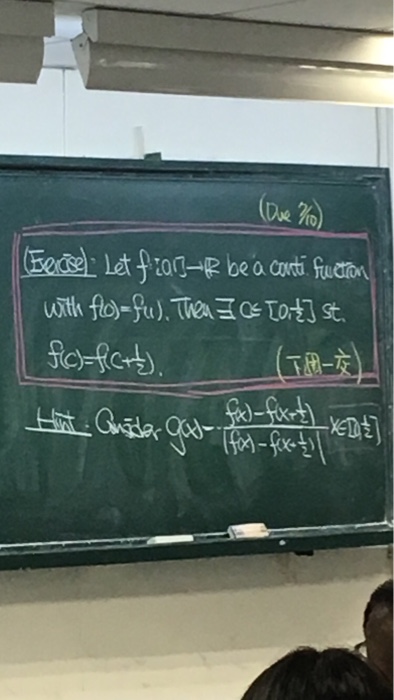 (Due 3/10)
(Exercise): Let f:[0,1]→ℝ be a conti function
with f(0)=f(1). Then ∃ C∈[0,½] st.
f(C)=f(C+½).
(下週一交)
Hint: Consider g(x)= f(x)-f(x+½) / |f(x)-f(x+½)| x∈[0,½]